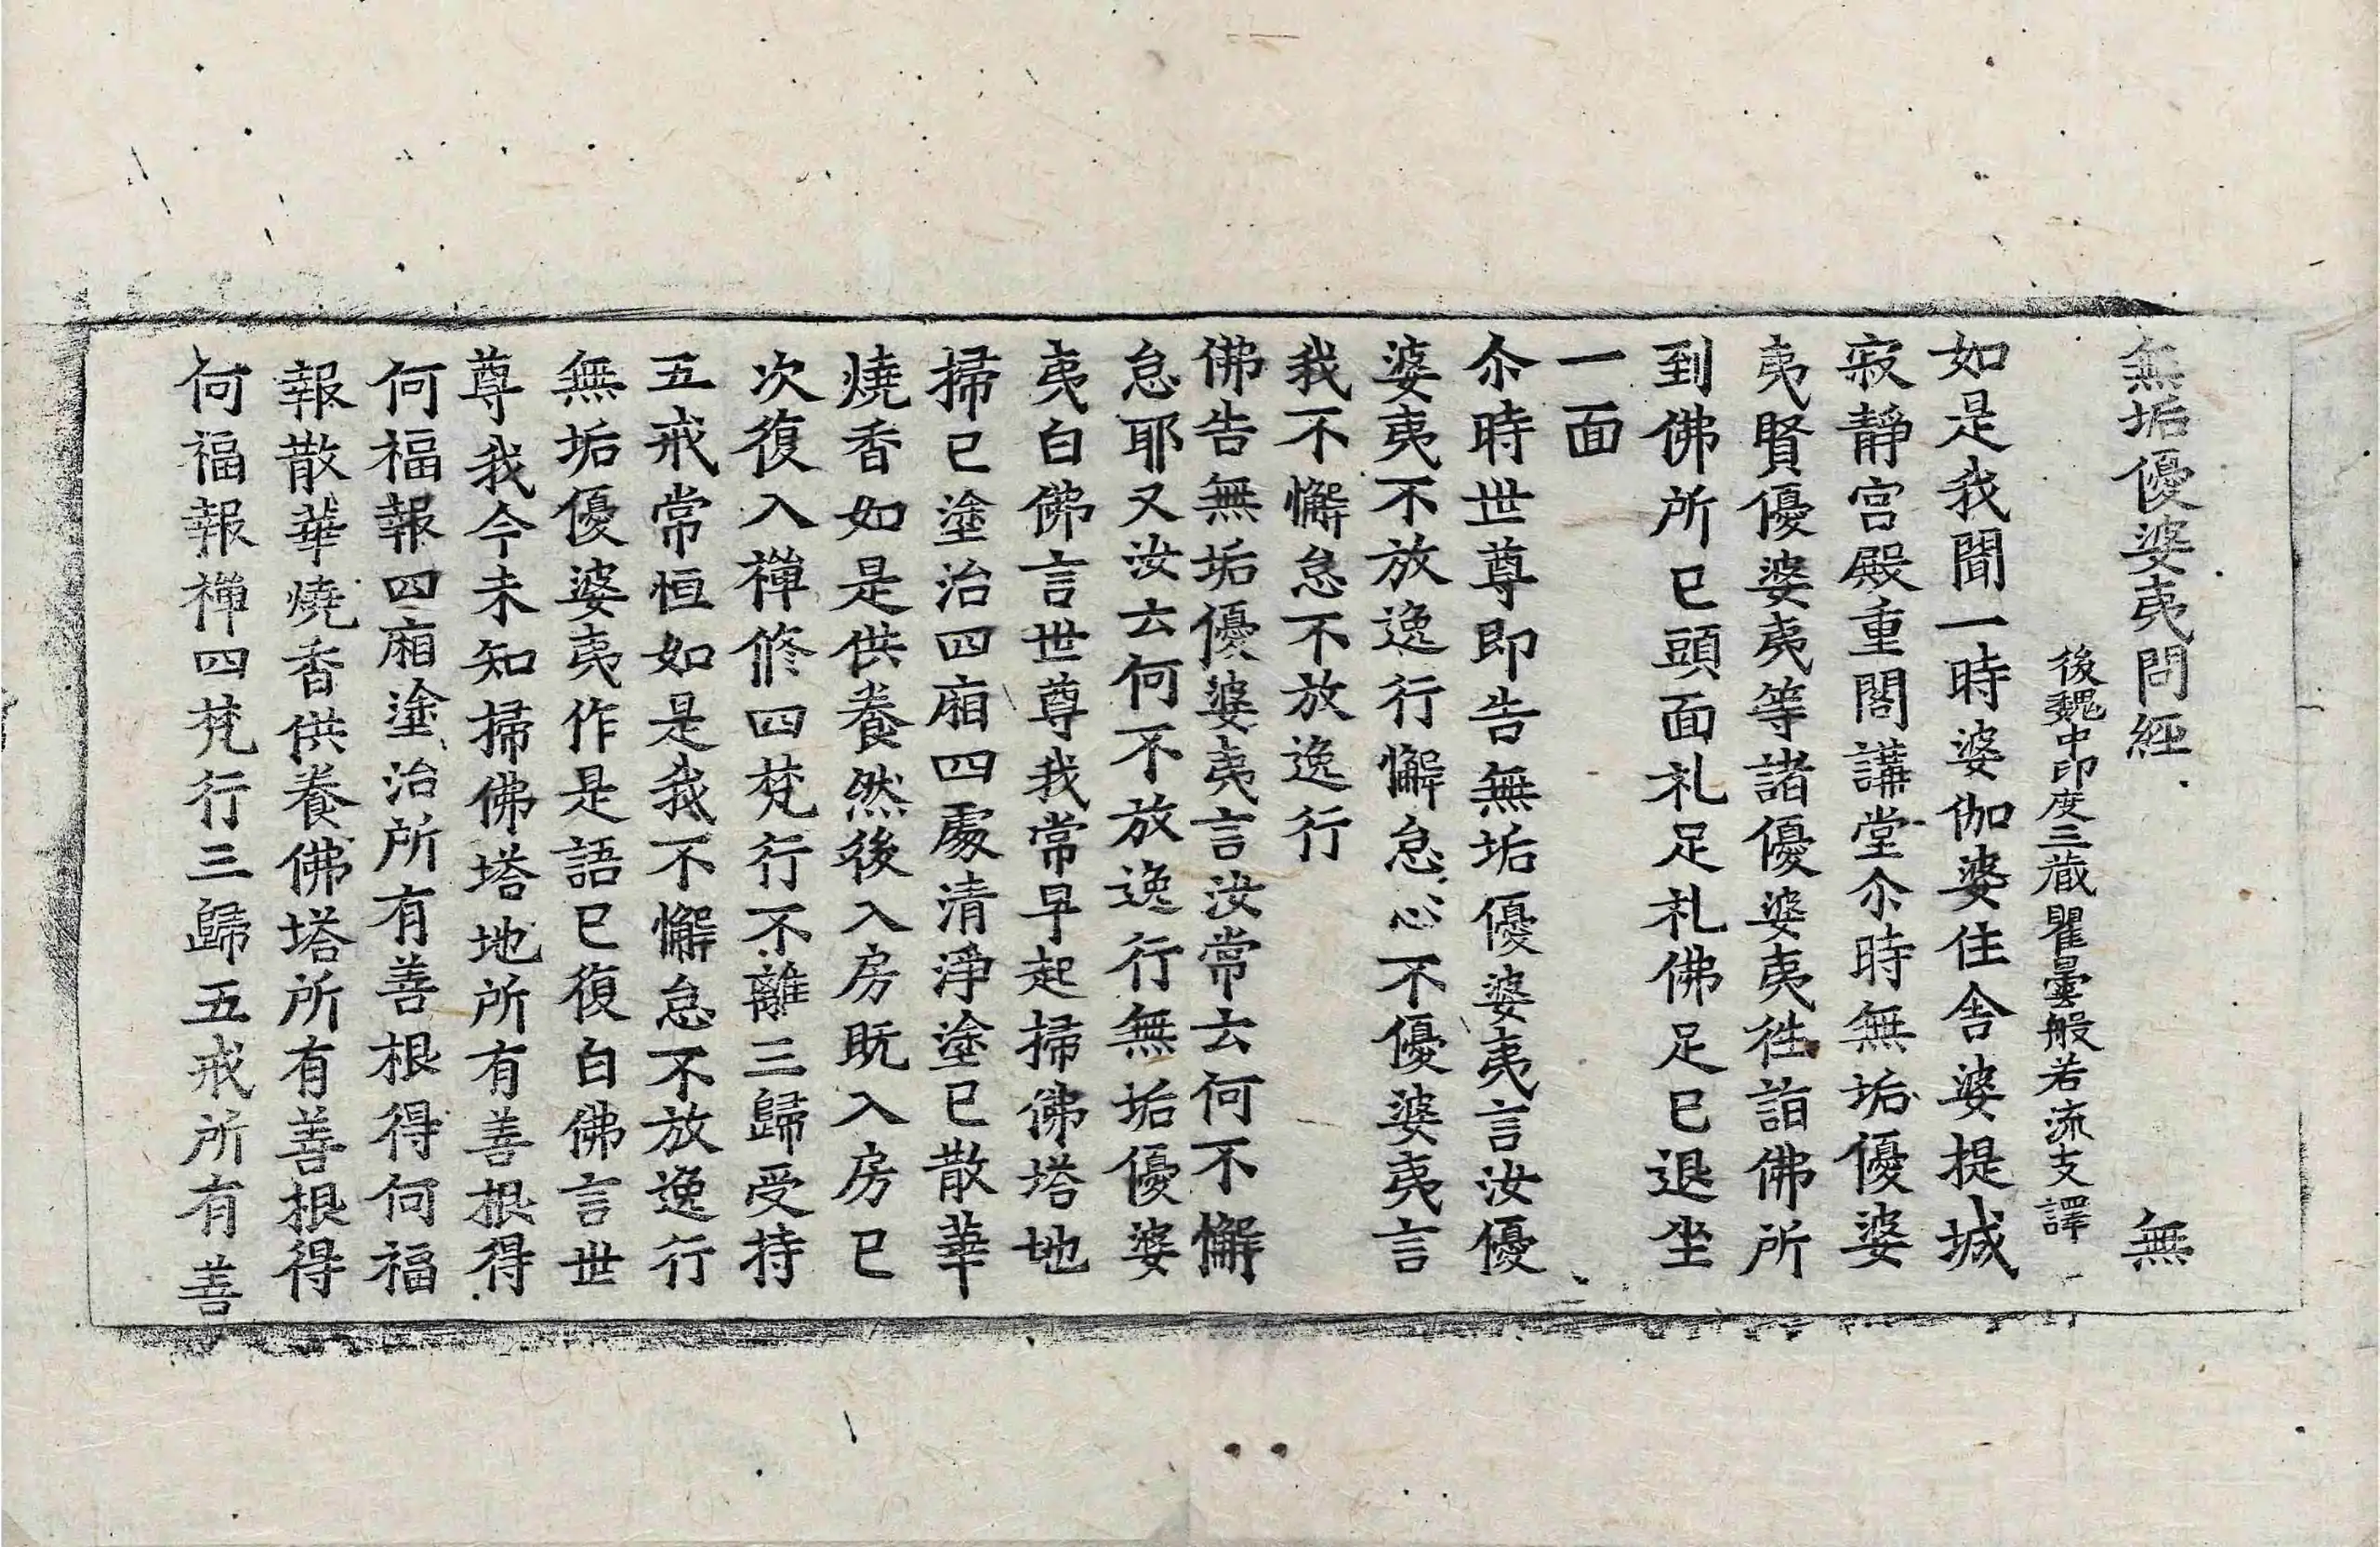 無垢優婆夷問經 無
後魏中印度三蔵瞿曇般若流支譯
如是我聞一時婆伽婆住舎婆提城
寂靜宮殿重閣講堂尒時無垢優婆
夷賢優婆夷等諸優婆夷徃詣佛所
到佛所已頭面礼足礼佛足已退坐
一面
尒時世尊即告無垢優婆夷言汝優
婆夷不放逸行懈怠心不優婆夷言
我不懈怠不放逸行
佛告無垢優婆夷言汝常云何不懈
怠耶又汝云何不放逸行無垢優婆
夷白佛言世尊我常早起掃佛塔地
掃已塗治四廂四處清淨塗已散華
燒香如是供養然後入房既入房已
次復入禪修四梵行不離三歸受持
五戒常恒如是我不懈怠不放逸行
無垢優婆夷作是語已復白佛言世
尊我今未知掃佛塔地所有善根得
何福報四廂塗治所有善根得何福
報散華燒香供養佛塔所有善根得
何福報禪四梵行三歸五戒所有善